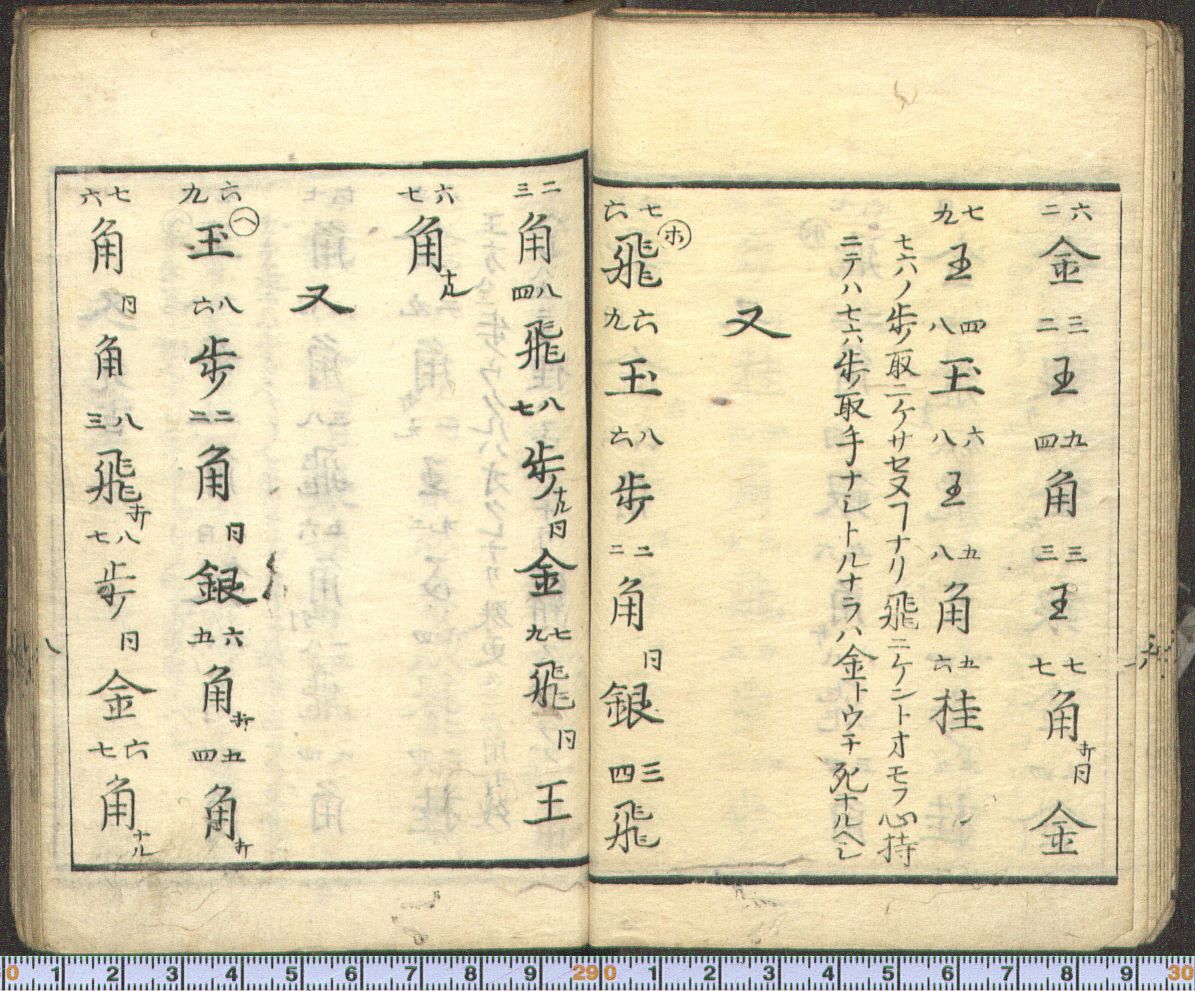 六二金三二王九四角三三王七七角打同金
七九王四八玉六八王五八角五六桂
七六ノ歩取ニケサセヌヿナリ飛ニケントオモラ心持
ニテハ七六歩ノ取手ナシトルナラハ金トウチ死ナルヘシ
又
ホ七六飛六九玉八六歩二二角同銀三四飛
二三角八四飛八七歩ナル同金七九飛同王
六七角ナル
又
ヘ六九玉八六歩二二角同銀六五角打五四角打
七六角同角八三飛打八七歩同金六七角ナル